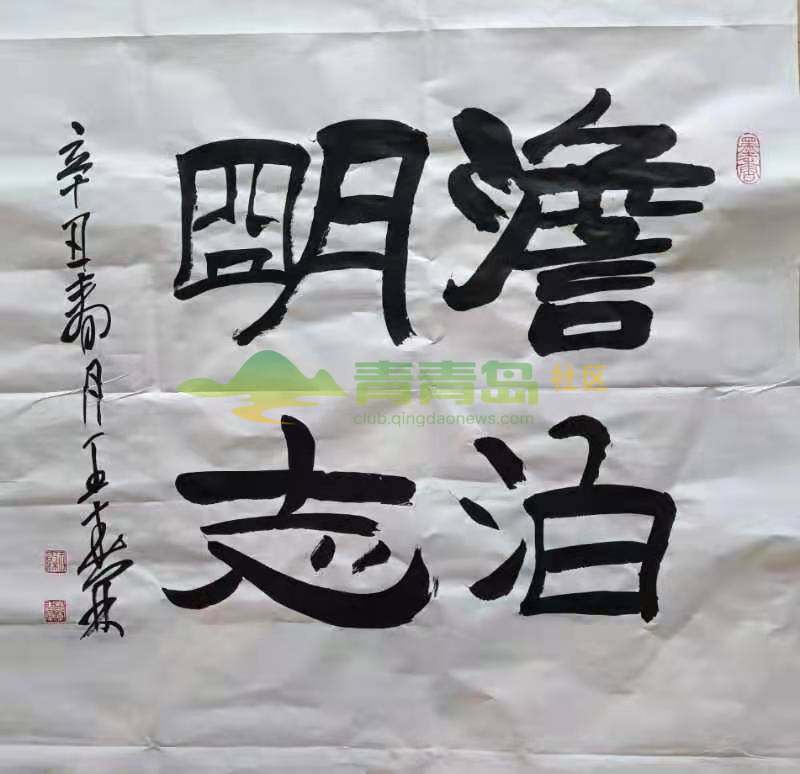 澹泊
明志
辛丑春月王春霖
青青岛社区
club.qingdaonews.com